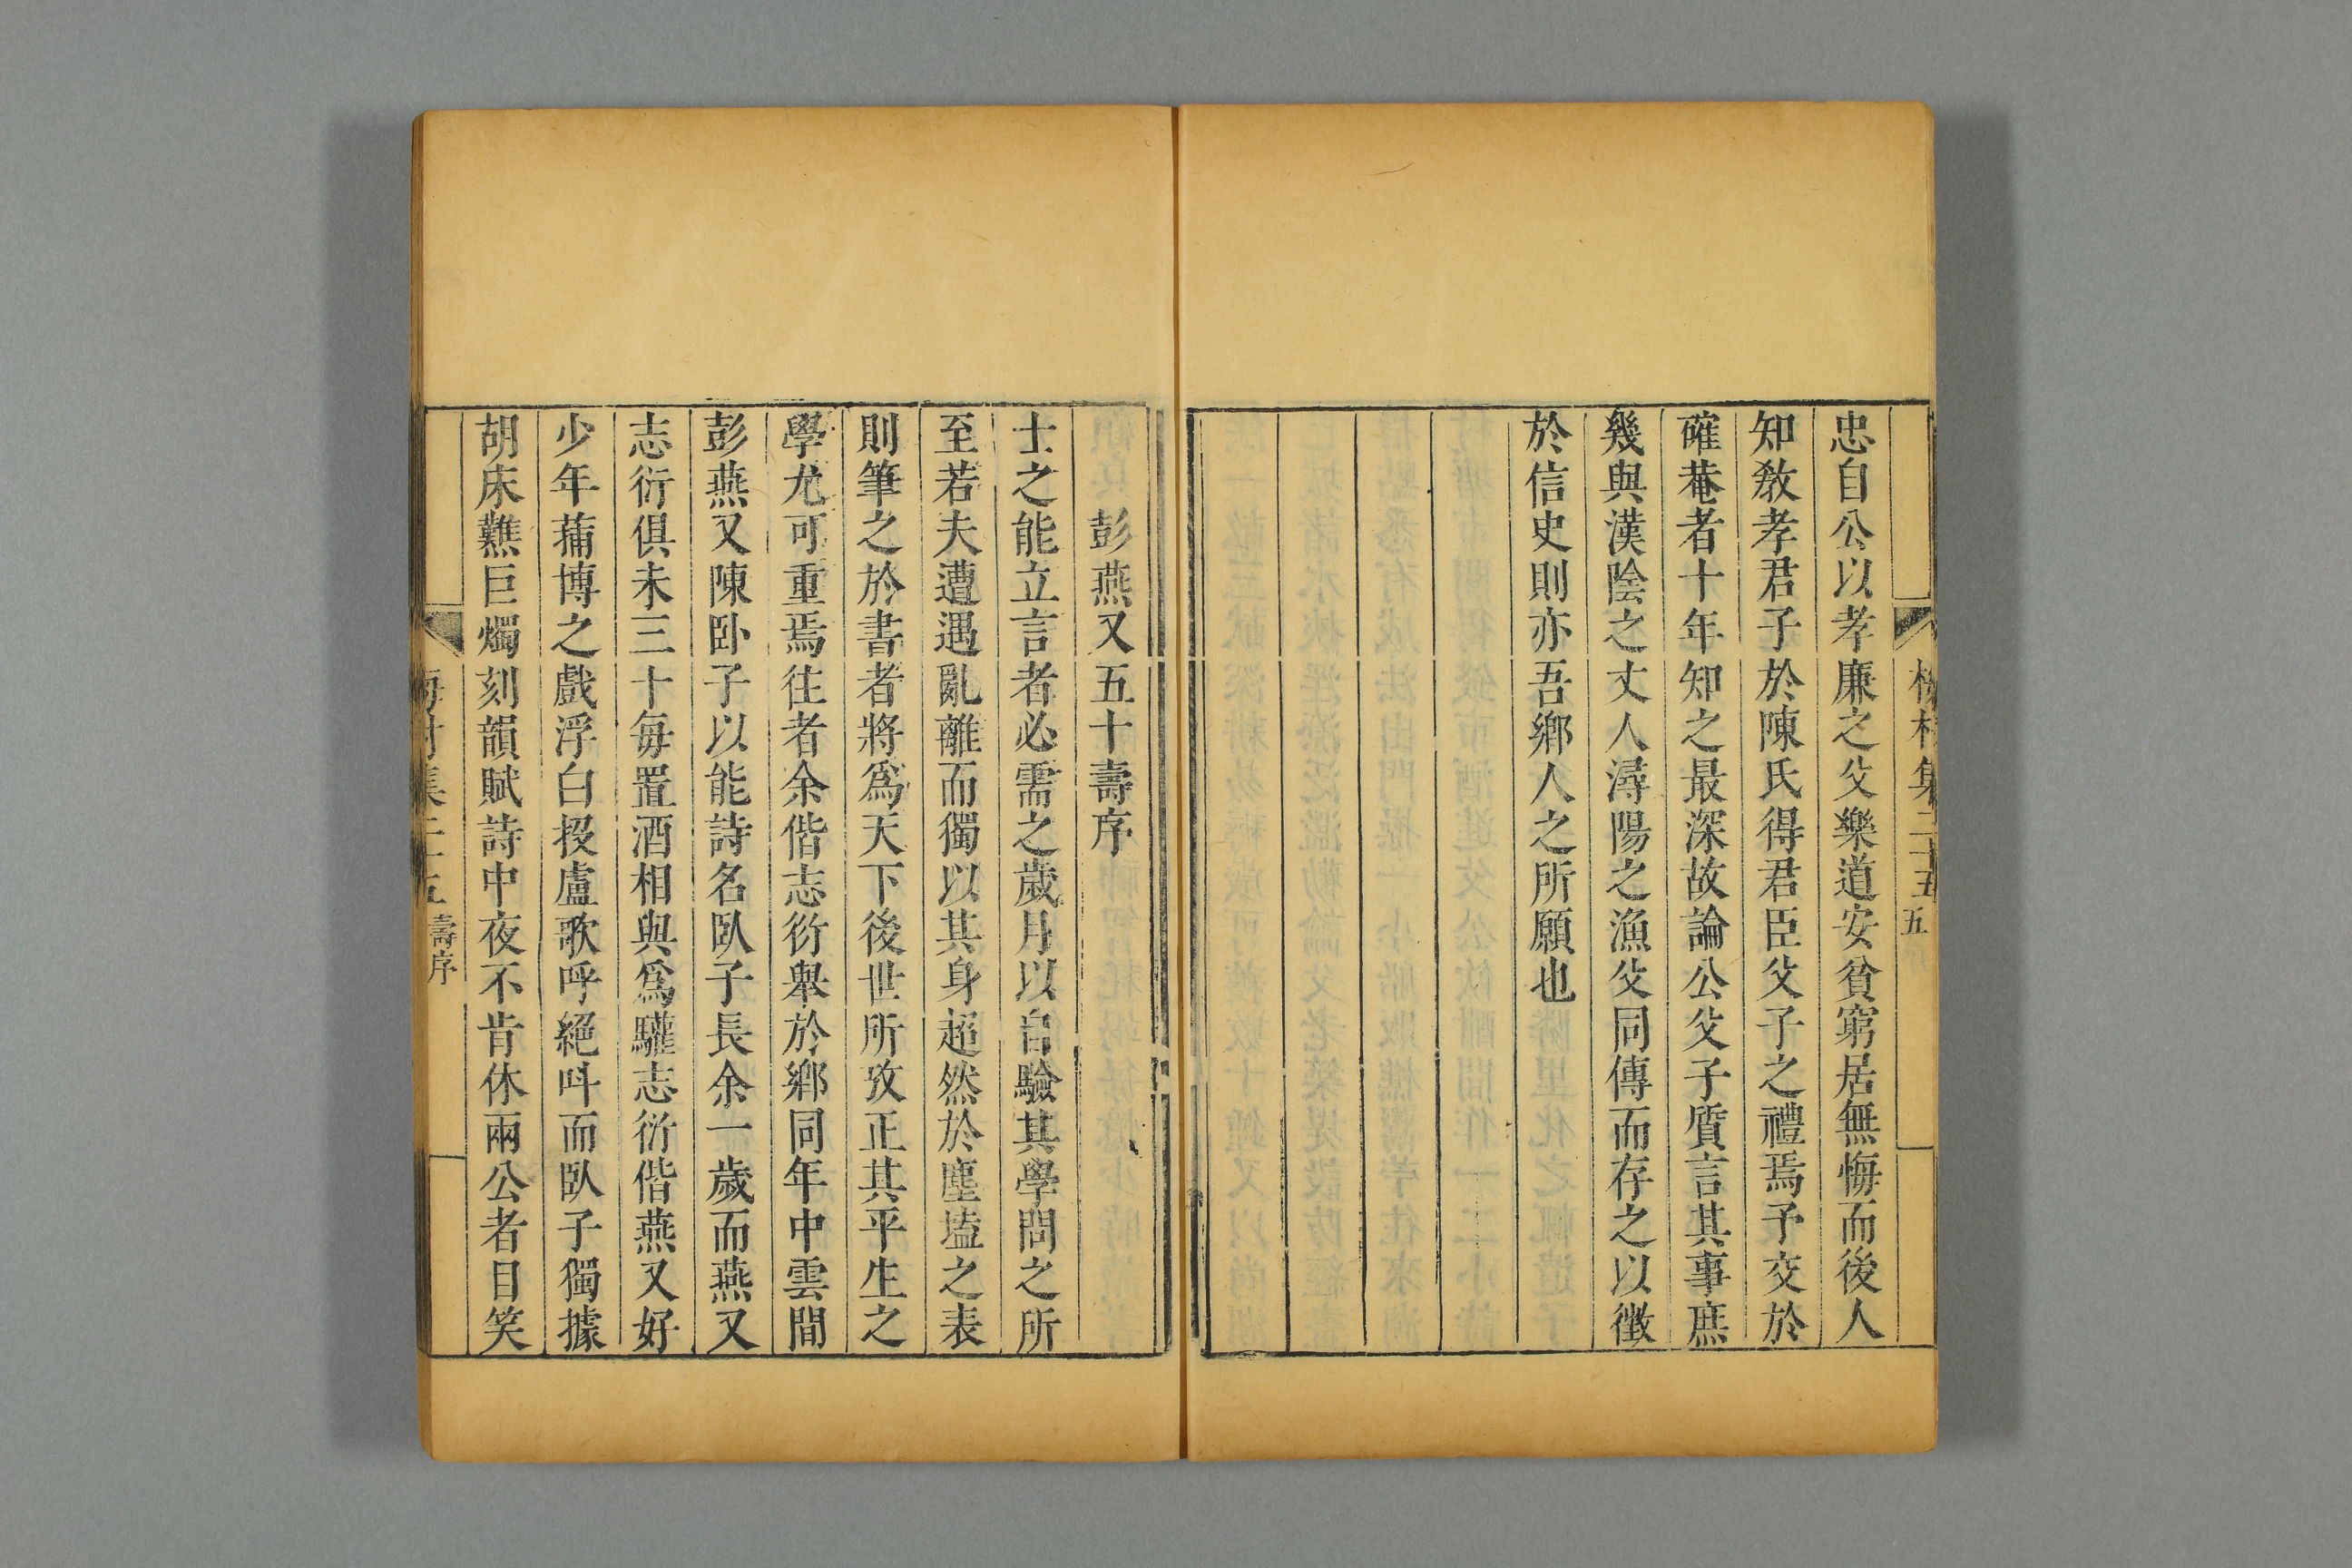 梅村集二十五 五
忠自公以孝廉之父樂道安貧窮居無悔而後人
知敎孝君子於陳氏得君臣父子之禮焉予交於
確菴者十年知之最深故論公父子質言其事庶
幾與漢陰之丈人潯陽之漁父同傳而存之以徵
於信史則亦吾鄉人之所願也
彭燕又五十壽序
士之能立言者必需之歲月以自驗其學問之所
至若夫遭遇亂離而獨以其身超然於塵壒之表
則筆之於書者將爲天下後世所攷正其平生之
學尤可重焉往者余偕志衍舉於鄉同年中雲間
彭燕又陳卧子以能詩名臥子長余一歲而燕又
志衍俱未三十每置酒相與爲驩志衍偕燕又好
少年蒱博之戲浮白投盧歌呼絕呌而臥子獨據
胡床㸐巨燭刻韻賦詩中夜不肯休兩公者日笑
梅村集二十五 壽序